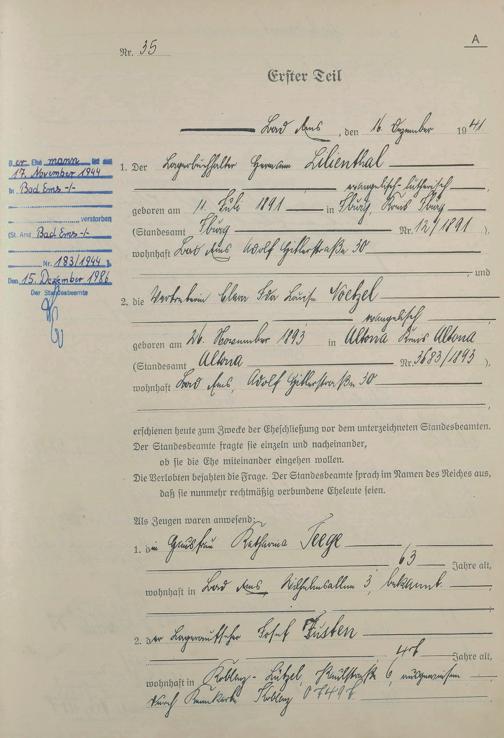 A
Nr. 35
Erster Teil
Bad Ems, den 16. Dezember 1941
1. Der Lagerbuchhalter Hermann Lilienthal
evangelisch-lutherisch,
geboren am 11. Juli 1891 in Iburg, Kreis Iburg
(Standesamt Iburg Nr. 12/1891),
wohnhaft Bad Ems Adolf Hitlerstraße 30
, und
2. die Vertreterin Clara Ida Luise Voetzel
evangelisch,
geboren am 26. November 1893 in Altona Kreis Altona
(Standesamt Altona Nr. 3683/1893),
wohnhaft Bad Ems, Adolf Hitlerstraße 30
,
erschienen heute zum Zwecke der Eheschließung vor dem unterzeichneten Standesbeamten.
Der Standesbeamte fragte sie einzeln und nacheinander,
ob sie die Ehe miteinander eingehen wollen.
Die Verlobten bejahten die Frage. Der Standesbeamte sprach im Namen des Reiches aus,
daß sie nunmehr rechtmäßig verbundene Eheleute seien.
Als Zeugen waren anwesend:
1. die Hausfrau Katharina Teege
63 Jahre alt,
wohnhaft in Bad Ems, Wilhelmsallee 3, bekannt.
2. der Josef
46 Jahre alt,
wohnhaft in Koblenz-Lützel, 6, ausgewiesen
durch Kennkarte Koblenz
Der Ehemann ist am
17. November 1944
in Bad Ems -/-
verstorben
(St. Amt Bad Ems -/-
Nr. 183/1944 )
Den 15. Dezember 1986
Der Standesbeamte